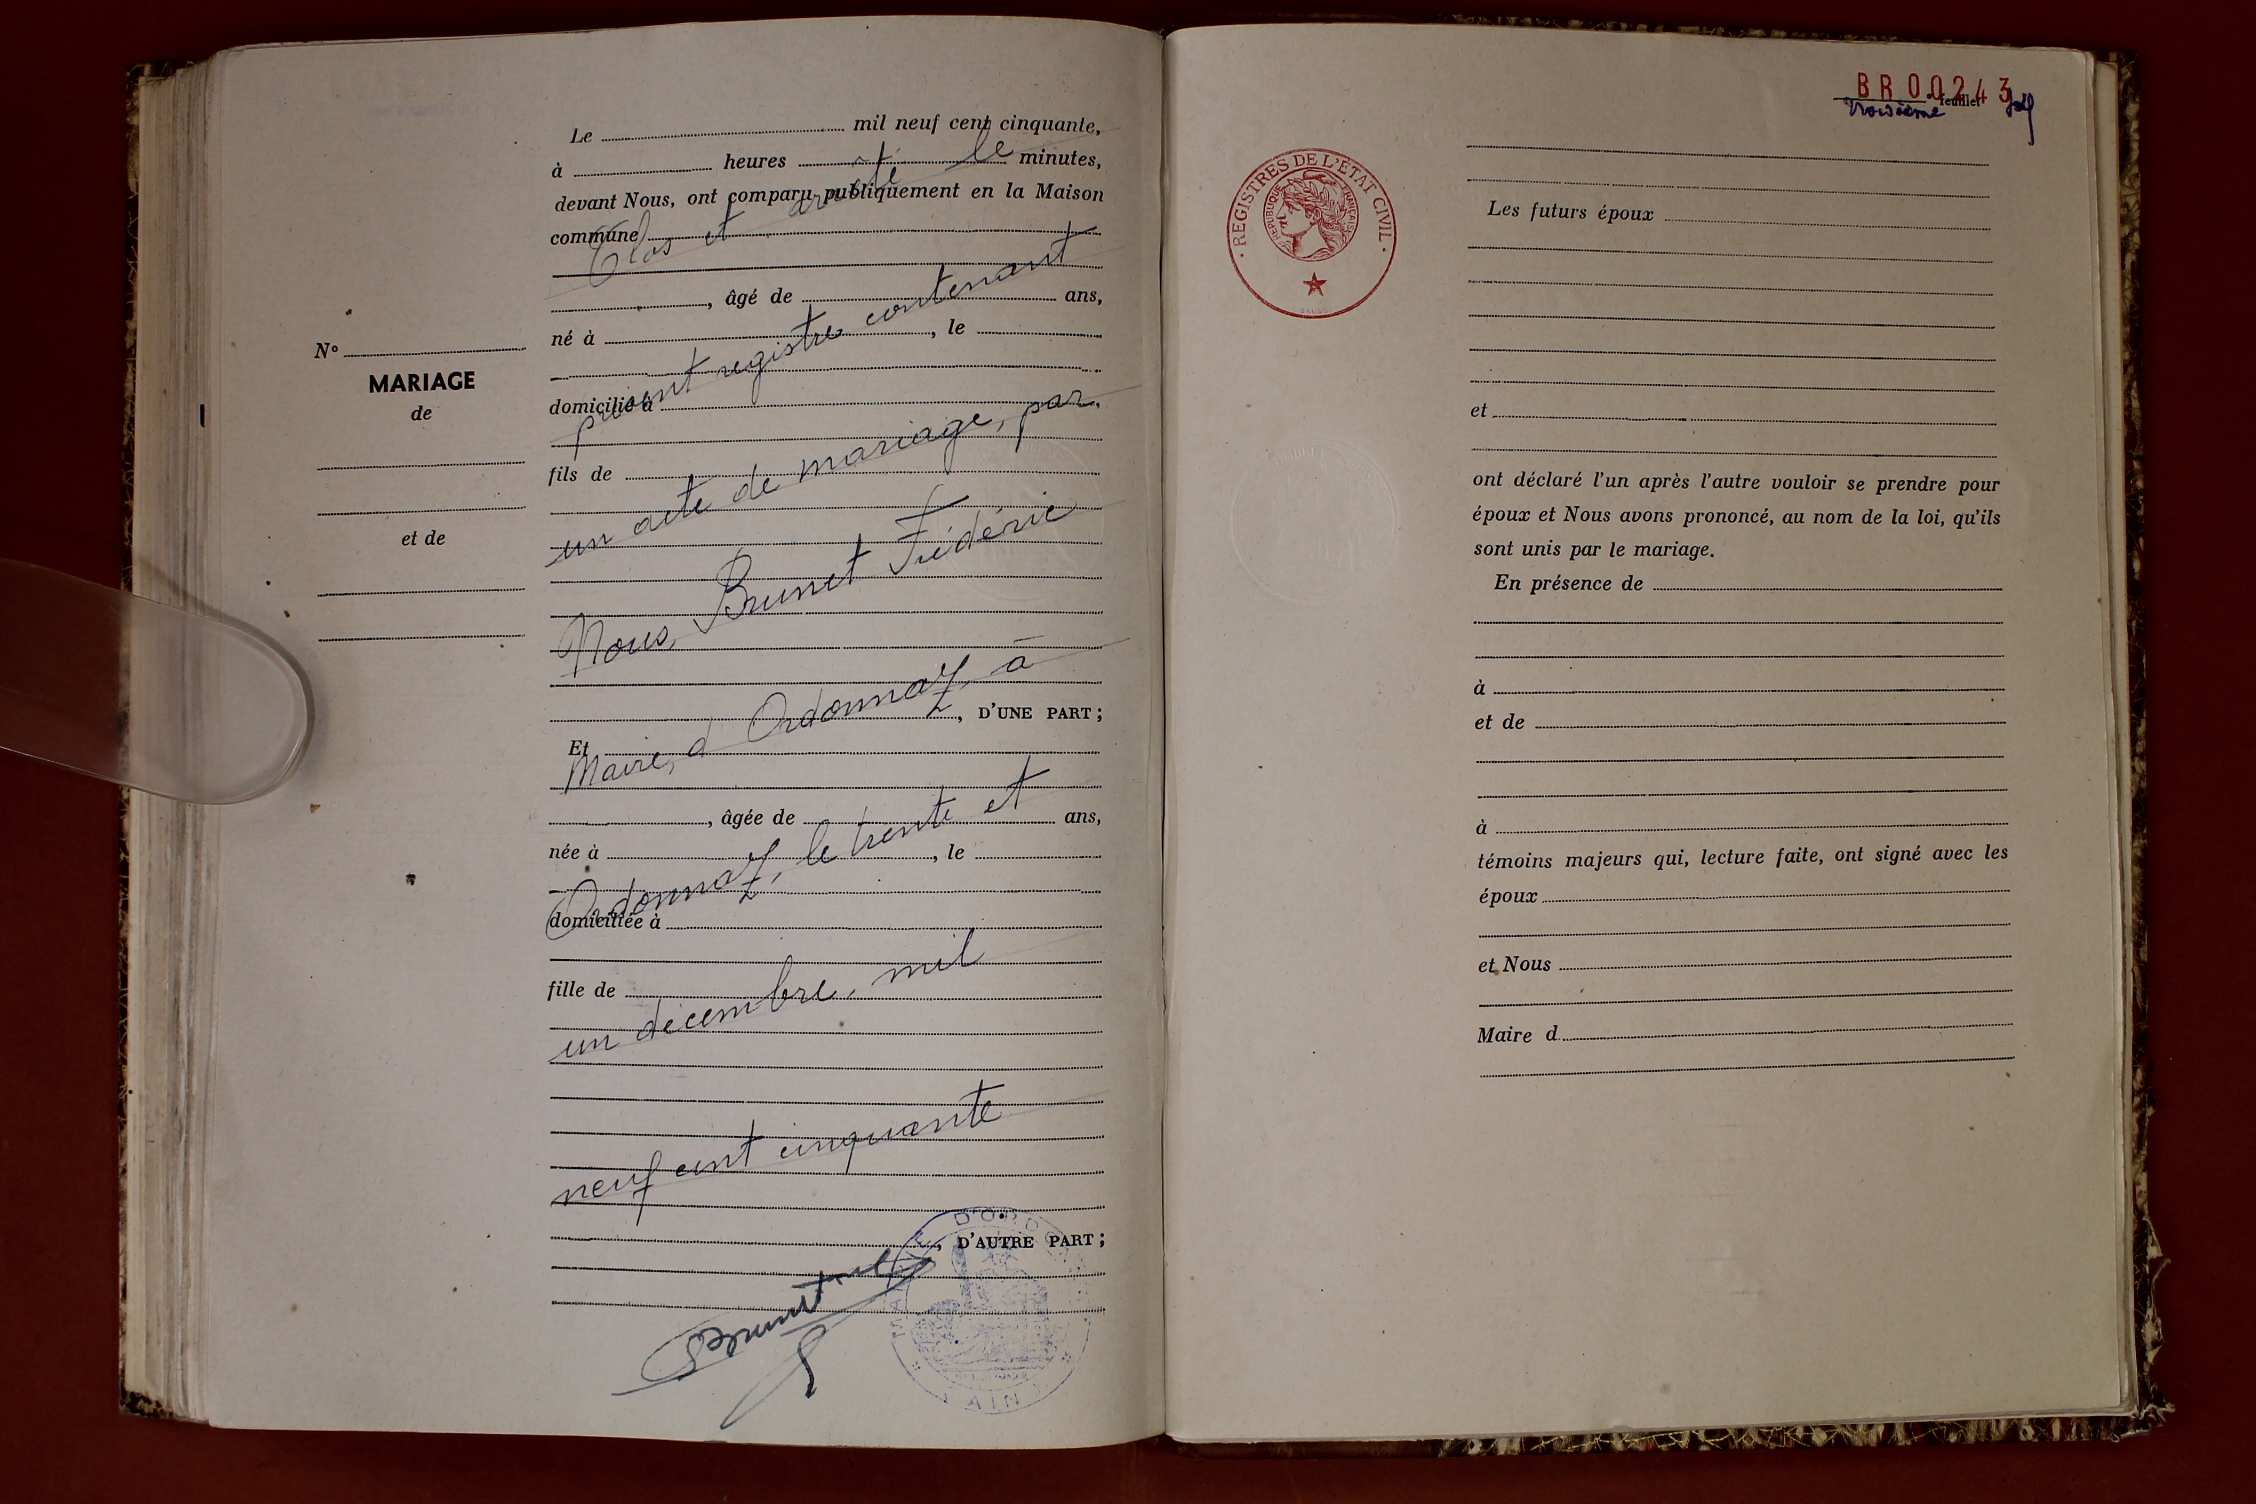 Le mil neuf cent cinquante,
à heures minutes,
devant Nous, ont comparu publiquement en la Maison
commune
, âgé de ans,
né à , le
domicilié à
fils de
, D'UNE PART ;
Et
, âgée de ans,
née à , le
domiciliée à
fille de
, D'AUTRE PART ;
Clos et arrêté le
présent registre contenant
un acte de mariage, par
Nous, Brunet Frédéric
Maire, d'Ordonnaz, à
Ordonnaz, le trente et
un décembre, mil
neuf cent cinquante
Brunet
MAIRIE D'ORDONNAZ
AIN
N°
MARIAGE
de
et de
BR 00243
troisième feuillet
REGISTRES DE L'ÉTAT CIVIL
RÉPUBLIQUE FRANÇAISE
Les futurs époux
et
ont déclaré l'un après l'autre vouloir se prendre pour
époux et Nous avons prononcé, au nom de la loi, qu'ils
sont unis par le mariage.
En présence de
à
et de
à
témoins majeurs qui, lecture faite, ont signé avec les
époux
et Nous
Maire d